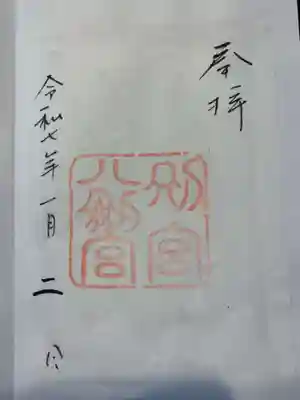 奉拝
別宮
八剣宮
令和七年一月二日